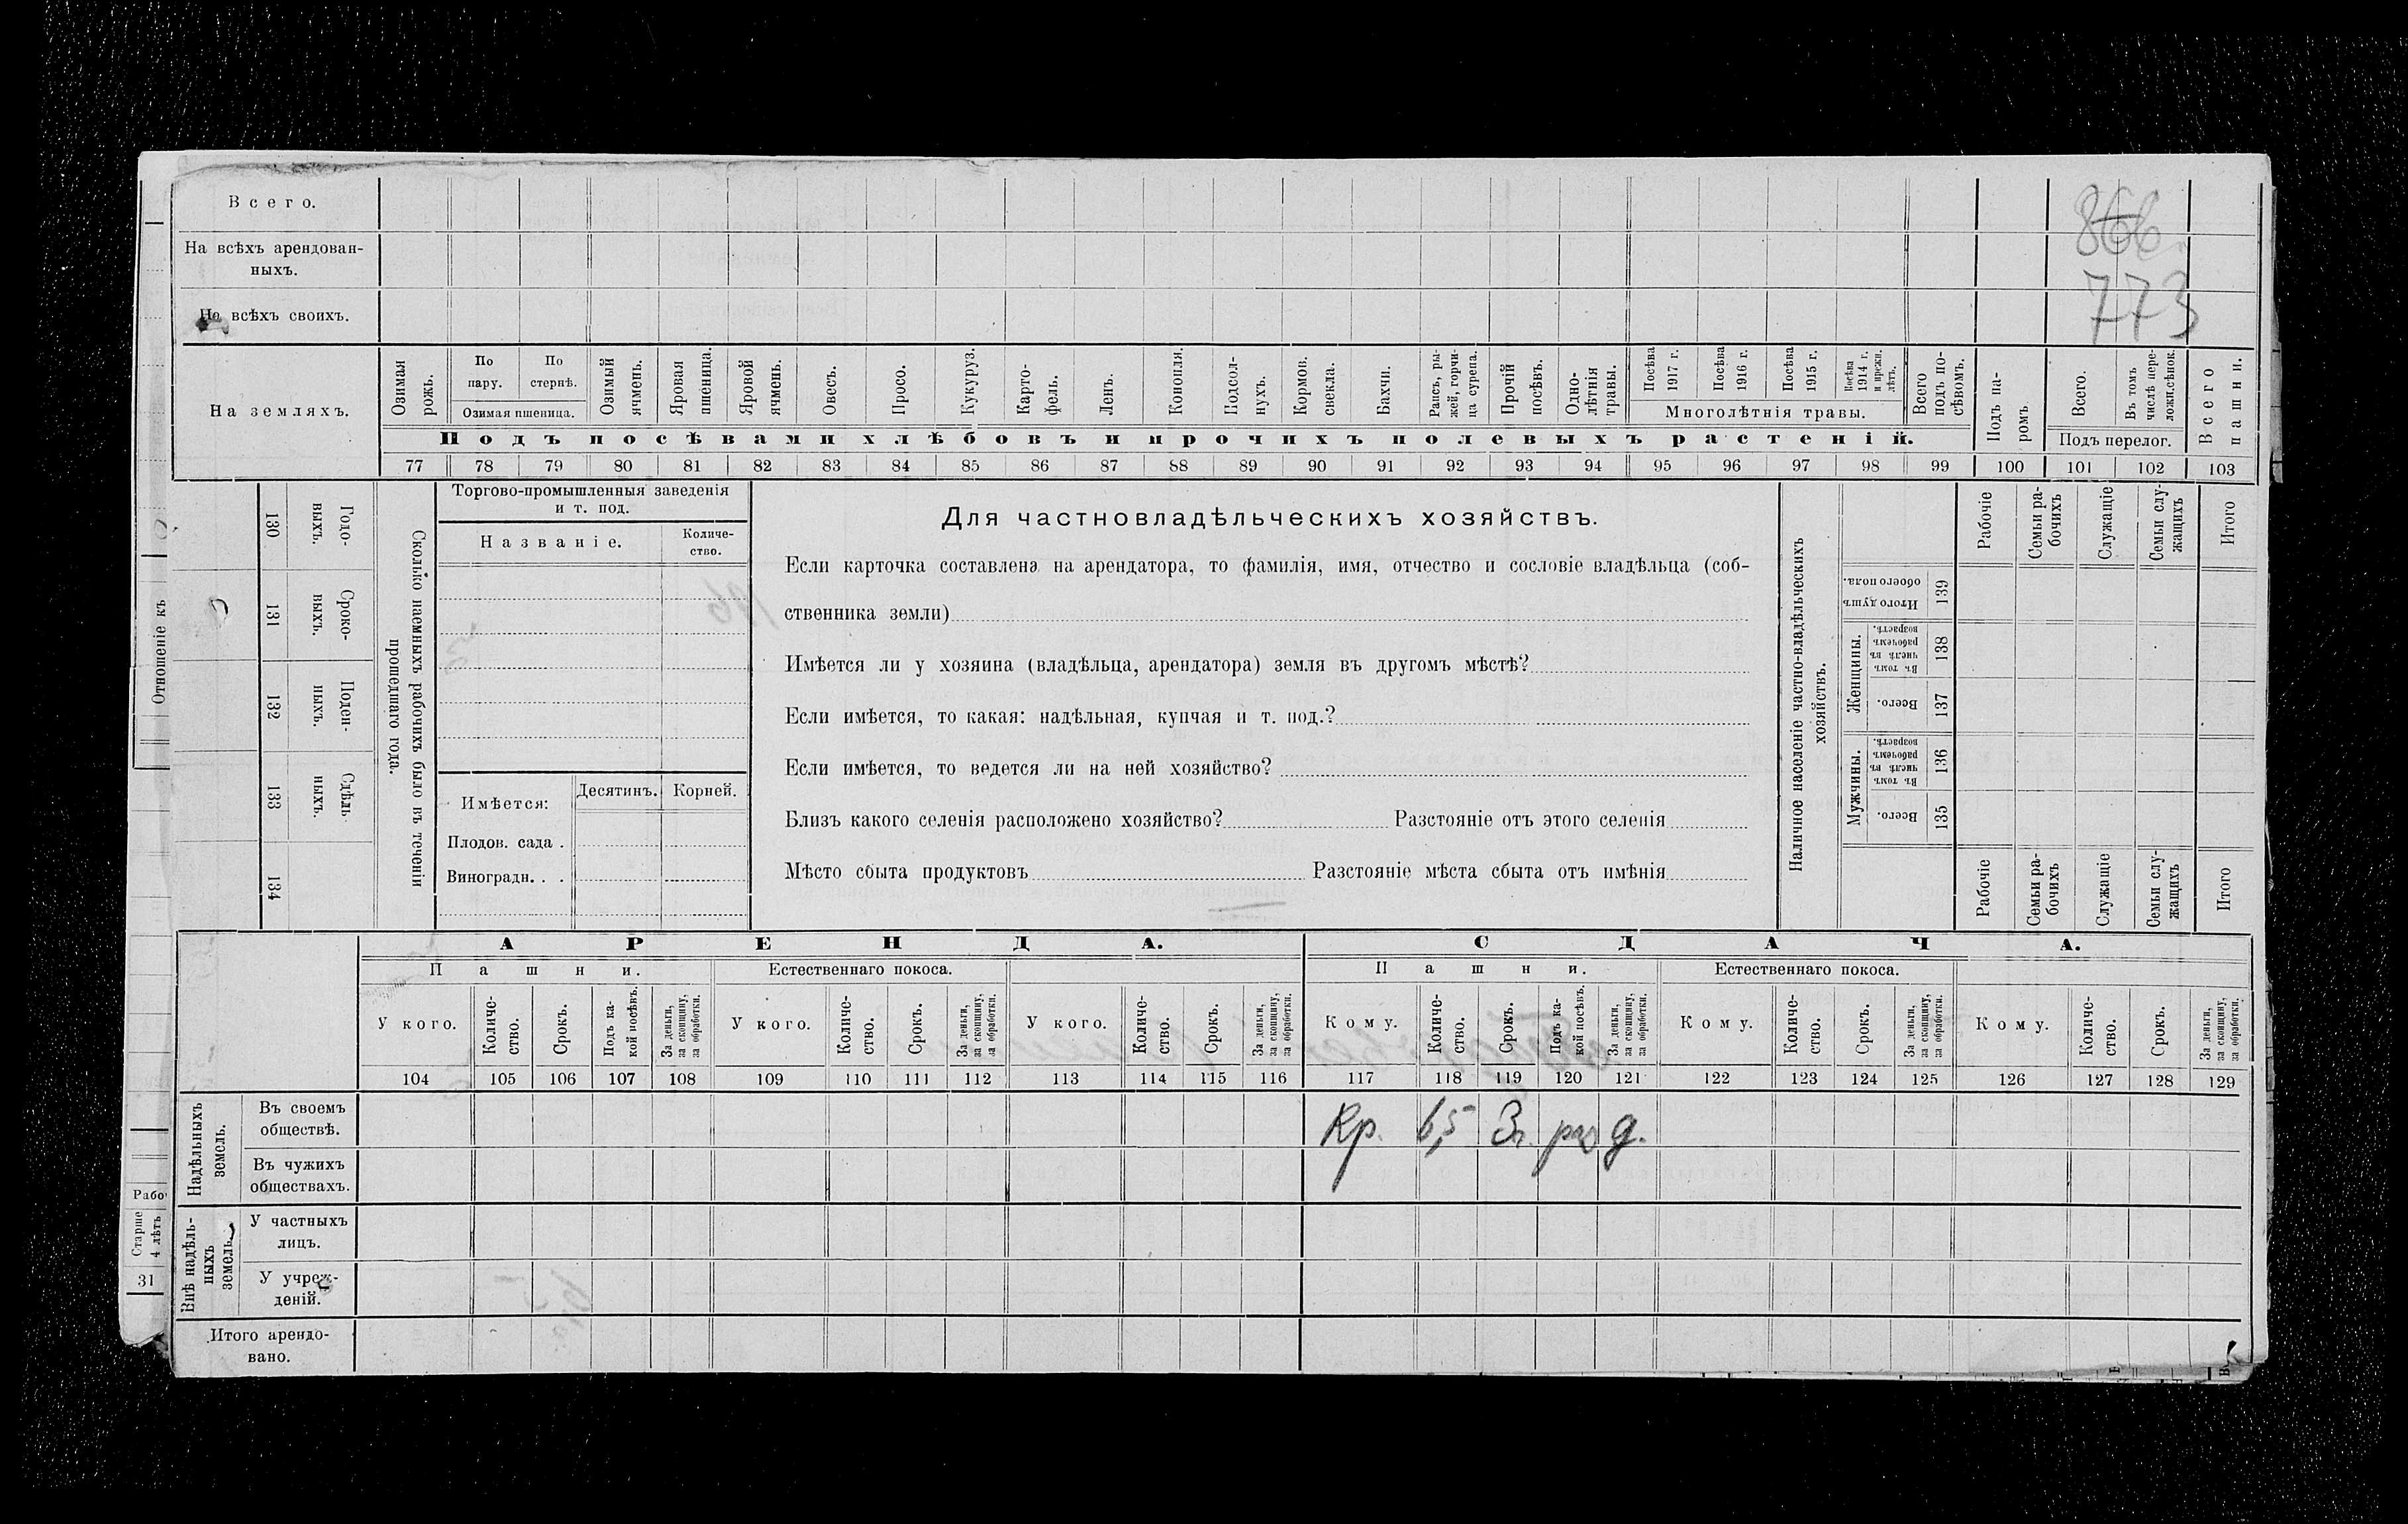 Всего.
866
На всѣхъ арендован-
ныхъ.
773
На всѣхъ своихъ.
На земляхъ.
Озимая рожь.
По пару.
По стернѣ.
Озимая пшеница.
Озимый ячмень.
Яровая пшеница.
Яровой ячмень.
Овесъ.
Просо.
Кукуруз.
Карто-
фель.
Ленъ.
Конопля.
Подсол-
нухъ.
Кормов. свекла.
Бахчи.
Рапсъ, ры-
жей, горчи-
ца сурепа.
Прочій посѣвъ.
Одно-
лѣтнія травы.
Посѣва 1917 г.
Посѣва 1916 г.
Посѣва 1915 г.
Посѣва 1914 г. и прежн. лѣтъ.
Многолѣтнія травы.
Всего подъ по-
сѣвомъ.
Подъ па-
ромъ.
Всего.
Въ томъ числѣ пере-
ложн.сѣнок.
Подъ перелог.
Всего пашни.
Подъ посѣвами хлѣбовъ и прочихъ полевыхъ растеній.
77 78 79 80 81 82 83 84 85 86 87 88 89 90 91 92 93 94 95 96 97 98 99 100 101 102 103
Отношеніе къ
130 Годо-
выхъ.
131 Сроко-
выхъ.
132 Поден-
ныхъ.
133 Сдѣль-
ныхъ.
134
Сколько наемныхъ рабочихъ было въ теченіи
прошедшаго года.
Торгово-промышленныя заведенія
и т. под.
Названіе.
Количе-
ство.
Имѣется:
Десятинъ.
Корней.
Плодов. сада .
Виноградн. . .
Для частновладѣльческихъ хозяйствъ.
Если карточка составлена на арендатора, то фамилія, имя, отчество и сословіе владѣльца (соб-
ственника земли)
Имѣется ли у хозяина (владѣльца, арендатора) земля въ другомъ мѣстѣ?
Если имѣется, то какая: надѣльная, купчая и т. под.?
Если имѣется, то ведется ли на ней хозяйство?
Близъ какого селенія расположено хозяйство? Разстояніе отъ этого селенія
Мѣсто сбыта продуктовъ Разстояніе мѣста сбыта отъ имѣнія
Наличное населеніе частно-владѣльческихъ
хозяйствъ.
Рабочіе
Семьи ра-
бочихъ
Служащіе
Семьи слу-
жащихъ
Итого
Итого душъ обоего пола. 139
Женщины.
Въ томъ числѣ въ рабочемъ возрастѣ. 138
Всего. 137
Мужчины.
Въ томъ числѣ въ рабочемъ возрастѣ. 136
Всего. 135
Рабочіе
Семьи ра-
бочихъ
Служащіе
Семьи слу-
жащихъ
Итого
АРЕНДА.
СДАЧА.
Пашни.
Естественнаго покоса.
Пашни.
Естественнаго покоса.
У кого.
Количе-
ство.
Срокъ.
Подъ ка-
кой посѣвъ.
За деньги, за скопщину, за обработки.
У кого.
Количе-
ство.
Срокъ.
За деньги, за скопщину, за обработки.
У кого.
Количе-
ство.
Срокъ.
За деньги, за скопщину, за обработки.
Кому.
Количе-
ство.
Срокъ.
Подъ ка-
кой посѣвъ.
За деньги, за скопщину, за обработки.
Кому.
Количе-
ство.
Срокъ.
За деньги, за скопщину, за обработки.
Кому.
Количе-
ство.
Срокъ.
За деньги, за скопщину, за обработки.
104 105 106 107 108 109 110 111 112 113 114 115 116 117 118 119 120 121 122 123 124 125 126 127 128 129
Надѣльныхъ
земель.
Въ своемъ
обществѣ.
Кр. 6,5 3 д.
Въ чужихъ
обществахъ.
Рабо
Старше
4 лѣтъ
31
Внѣ надѣль-
ныхъ
земель.
У частныхъ
лицъ.
У учреж-
деній.
Итого арендо-
вано.